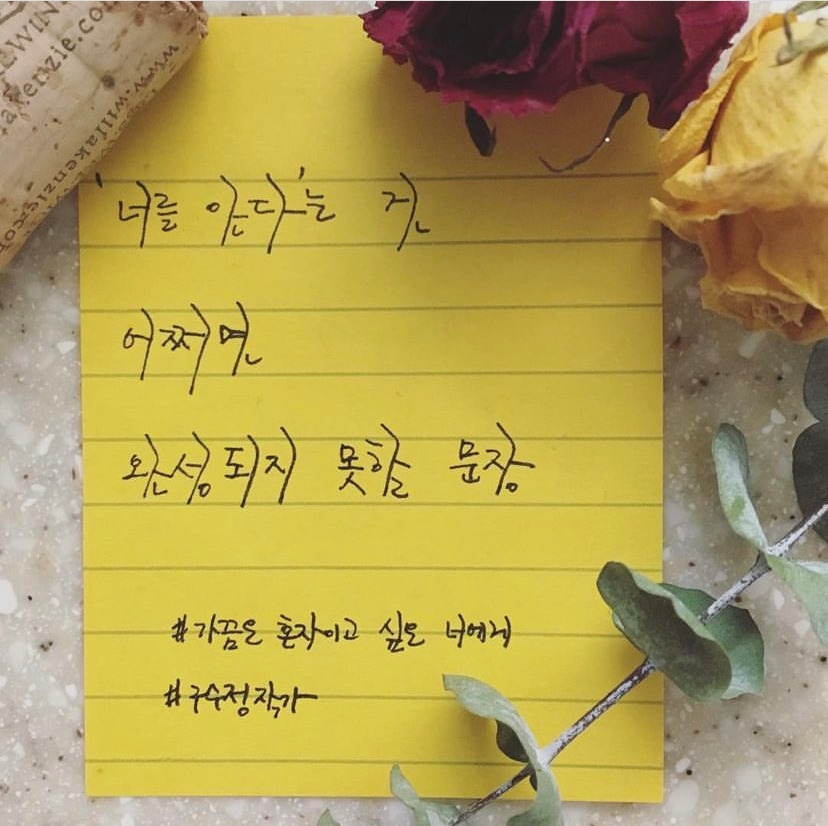 WIN
akenzie.co
www.willakenzie.co
'너를 안다'는 건
어쩌면
완성되지 못할 문장
#가끔은 혼자이고 싶은 너에게
#구수정작가